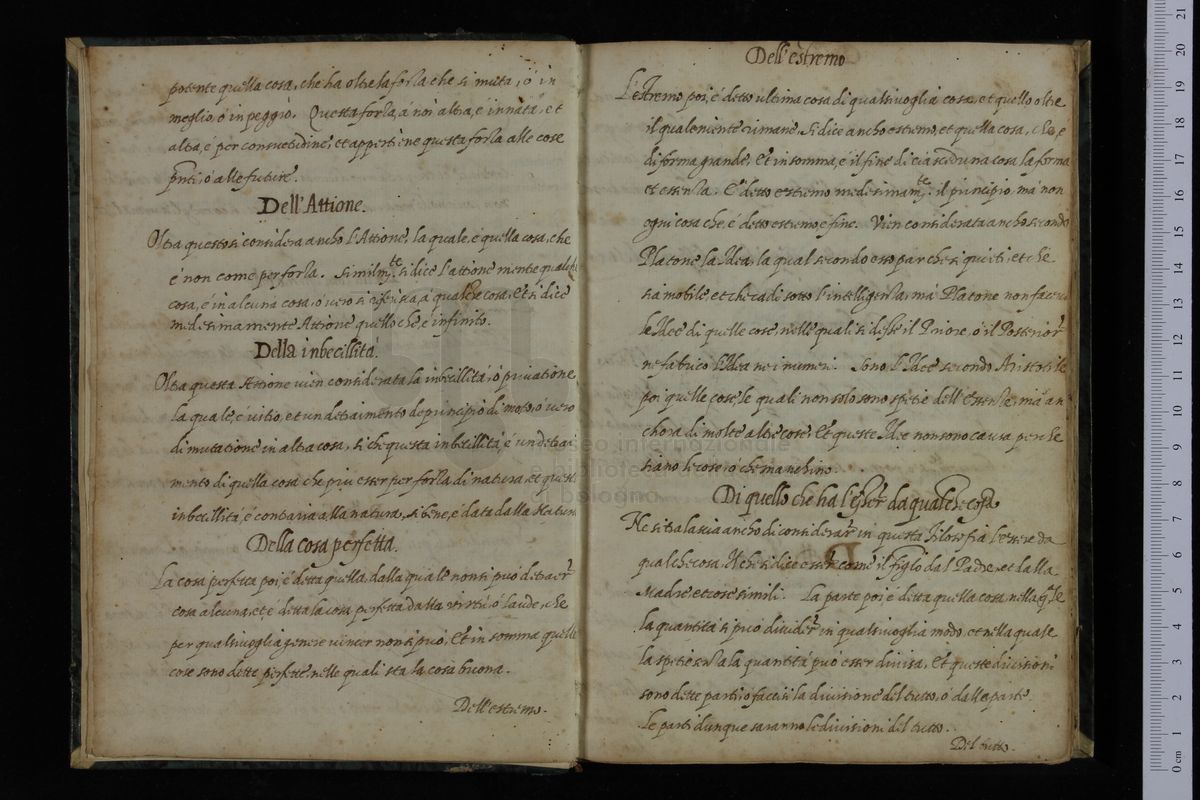 potente quella cosa, che ha oltre la forza che si muta, ò in
meglio, ò in peggiò. Questa forza, à noi altra, è innata, et
altra, è per consuetudine, et appertiene questa forza alle cose
pñti, ò alle future.
Dell'Attione.
Oltra questo si considera ancho l'Attione, la quale, è quella cosa, che
è non come per forza. Similmte si dice l'attione mente qualche
cosa, è in alcuna cosa, ò vero si à qualche cosa, Et si dice
medesimamente Attione quello che, è infinito.
Della inbecillità.
Oltra questa Attione vien considerata la inbecillità, ò privatione
la quale, è vitio, et un detraimento de principio di moto, ò vero
di mutatione in altra cosa, si che questa inbecillità, è un detrai
mento di quella cosa che può esser per forza di natura, et questa
inbecillità, è contraria alla natura, si bene, è data dalla Natura
Della cosa perfetta.
La cosa perfetta poi, è detta quella, dalla quale non si può detraer
cosa alcuna, et, è detta la cosa perfetta dalla virtù, ò laude, che
per qualsivoglia genere vincer non si può, Et in somma quelle
cose sono dette perfette, nelle quali sta la cosa buona.
Dell'estremo.
Dell'estremo
L'estremo poi, è detto ultima cosa di qualsivoglia cosa, et quello oltre
il quale niente rimane, Si dice ancho estremo, et quella cosa, che, è
di forma grande, Et in somma, è il fine di ciascheduna cosa la forma
et essenza. E' detto estremo medesimamte il principio, mà non
ogni cosa che, è detto estremo è fine. Vien considerata ancho secondo
Platone la Idea, la qual secondo esso par che si quieti, et che
sia mobile, et che cadi sotto l'intelligenza, mà Platone non faceva
le Idee di quelle cose, nelle quali si disse il Priore, ò il Posterior
ne fabricò l'Idea ne i numeri. Sono l'Idee secondo Aristotile
poi quelle cose, le quali non solo sono spetie dell'essenze, mà an
chora di molte altre cose, Et queste Idee non sono causa perche
siano le cose, ò che manchino.
Di quello che ha l'esser da qualche cosa
Ne si tralascia ancho di considerar in questa Filosofia l'essere da
qualche cosa, Il che si dice esser come il figlio dal Padre, et dalla
Madre, et cose simili. La parte poi è detta quella cosa, nella qle
la quantità si può divider in qualsivoglia modo, et nella quale
la spetie senza la quantità può esser divisa, Et queste divisioni
sono dette parti, ò faccisi la divisione del tutto, ò dalla parte
le parti dunque saranno le divisioni del tutto.
Del tutto.
museo internazionale
e biblioteca
di bologna